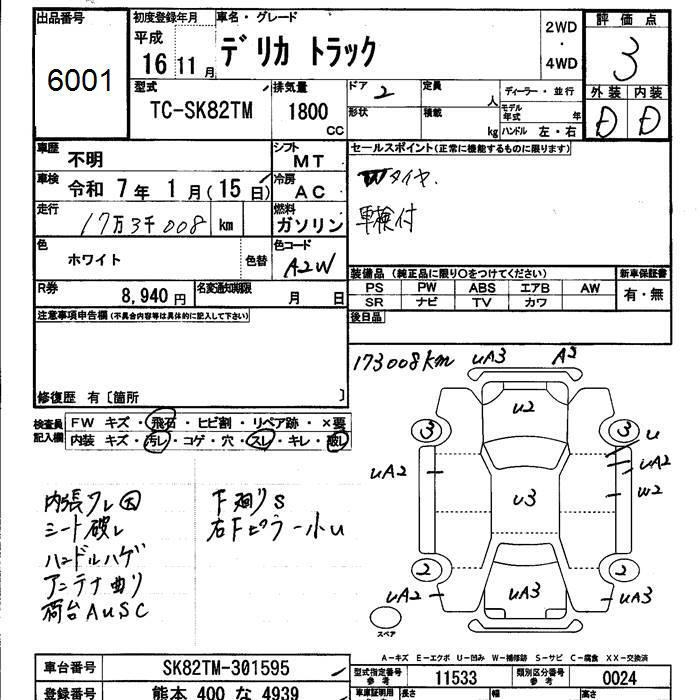 出品番号
6001
初度登録年月
平成
16 11月
車名・グレード
デリカ トラック
2WD
・
4WD
評価点
3
外装 内装
D D
型式
TC-SK82TM
排気量
1800
cc
ドア 2
定員
人
形状
積載
kg
ディーラー・並行
モデル年式 年
ハンドル 左・右
車歴
不明
シフト
MT
車検
令和 7年 1月(15日)
冷房
AC
走行
17万3千008 km
燃料
ガソリン
色
ホワイト
色替
色コード
A2W
R券
8,940 円
名変通知期限
月 日
セールスポイント(正常に機能するものに限ります)
Wタイヤ.
車検付
装備品(純正品に限り○をつけてください)
新車保証書
PS PW ABS エアB AW
SR ナビ TV カワ
有・無
後日品
注意事項申告欄(不具合内容等は具体的に記入して下さい)
修復歴 有〔箇所 〕
検査員記入欄
FW キズ・飛石・ヒビ割・リペア跡・×要
内装 キズ・汚レ・コゲ・穴・スレ・キレ・破レ
173008km
uA3 A2
u2
3 3
u
uA2 uA2
w2
u3
2 2
uA2 uA3 uA3
スペア
内張ワレ大
シート破レ
ハンドルハゲ
アンテナ曲り
荷台AuSC
下廻りS
右Fピラー小u
A－キズ E－エクボ U－凹み W－補修跡 S－サビ C－腐食 XX－交換済
車台番号
SK82TM-301595
型式指定番号
参考
11533
類別区分番号
参考
0024
登録番号
熊本 400 な 4939
車庫証明用
長さ
幅
高さ